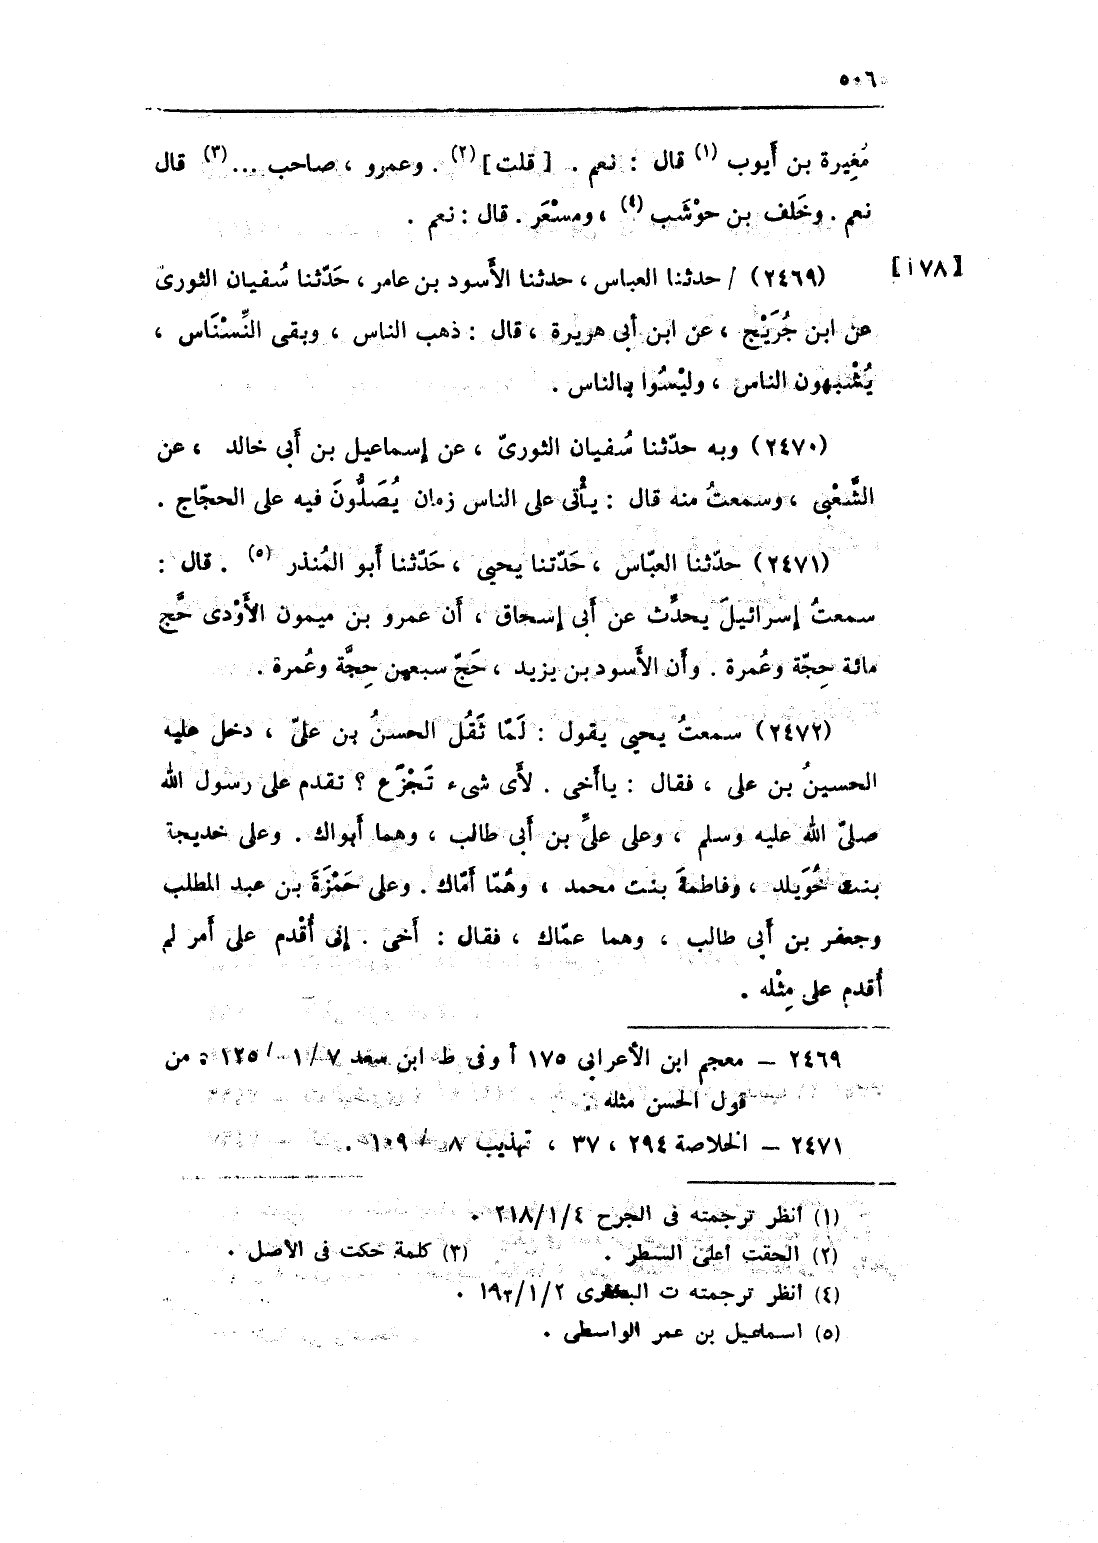 ٥٠٦
مُغِيرة بن أَيوب (١) قال : نعم . [ قلت ] (٢) . وعمرو ، صاحب ... (٣) قال
نعم . وخَلف بن حوْشَب (٤) ، ومسْعَر . قال : نعم .
[٧٨ أ]
(٢٤٦٩) / حدثنا العباس ، حدثنا الأَسود بن عامر ، حَدّثنا سُفيان الثورى
عن ابن جُرَيْج ، عن ابن أبى هريرة ، قال : ذهب الناس ، وبقى النِّسْنَاس ،
يُشْبهون الناس ، وليْسُوا بالناس .
(٢٤٧٠) وبه حدّثنا سُفيان الثورىّ ، عن إسماعيل بن أَبى خالد ، عن
الشَّعْبى ، وسمعتُ منه قال : يأْتى على الناس زمان يُصَلُّونَ فيه على الحجّاج .
(٢٤٧١) حدّثنا العبّاس ، حَدّتنا يحيى ، حَدّثنا أَبو المُنذر (٥) . قال :
سمعتُ إسرائيلَ يحدِّث عن أَبى إسحاق ، أَن عمرو بن ميمون الأَوْدى حَّج
مائة حِجّة وعُمرة . وأَن الأَسود بن يزيد ، حَجّ سبعين حِجَّة وعُمرة .
(٢٤٧٢) سمعتُ يحيى يقول : لَمّا ثَقُل الحسنُ بن علىّ ، دخل عليه
الحسينُ بن على ، فقال : ياأَخى . لأَى شىء تَجْزَع ؟ تقدم على رسول الله
صلىّ الله عليه وسلم ، وعلى علىِّ بن أَبى طالب ، وهما أَبواك . وعلى خديجة
بنت خُوَيلد ، وفاطمةَ بنت محمد ، وهُمّا أَمّاك . وعلى حَمْزَةَ بن عبد المطلب
وجعفر بن أَبى طالب ، وهما عمّاك ، فقال : أَخى . إنى أُقْدم على أَمر لم
أُقدم على مِثْله .
٢٤٦٩ – معجم ابن الأعرابي ١٧٥ أ وفى ط ابن سعد ٧ /١/ ١٢٥ : من
قول الحسن مثله .
٢٤٧١ – الخلاصة ٢٩٤ ، ٣٧ ، تهذيب ٨ / ١٠٩ .
(١) أنظر ترجمته فى الجرح ٢١٨/١/٤ .
(٢) الحقت أعلى السطر . (٣) كلمة حكت فى الأصل .
(٤) أنظر ترجمته ت البخارى ١٩٣/١/٢ .
(٥) اسماعيل بن عمر الواسطى .